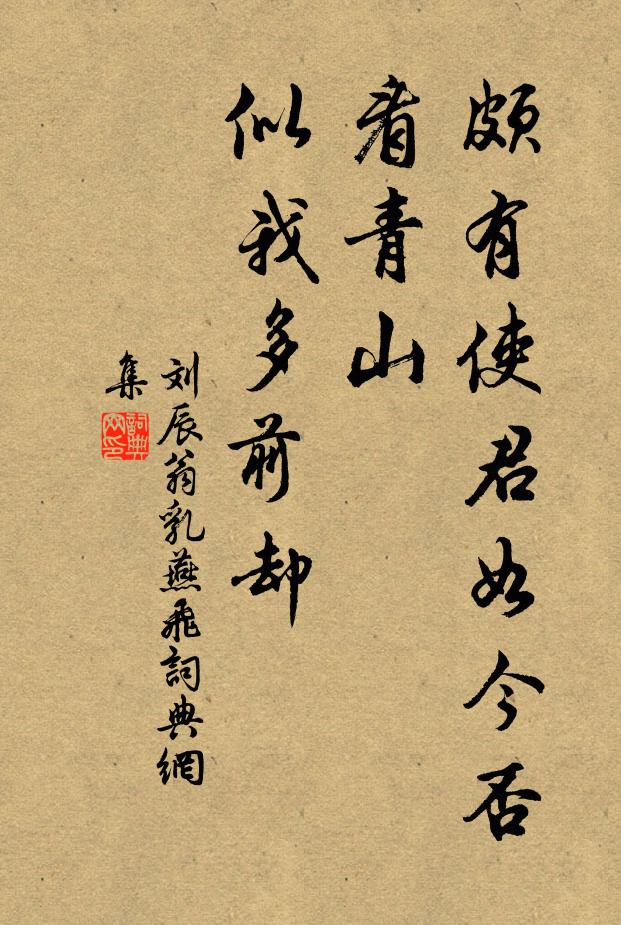 颇有使君如今否
看青山
似我多前却
刘辰翁乳燕飞詞典網
集
詞典
网印